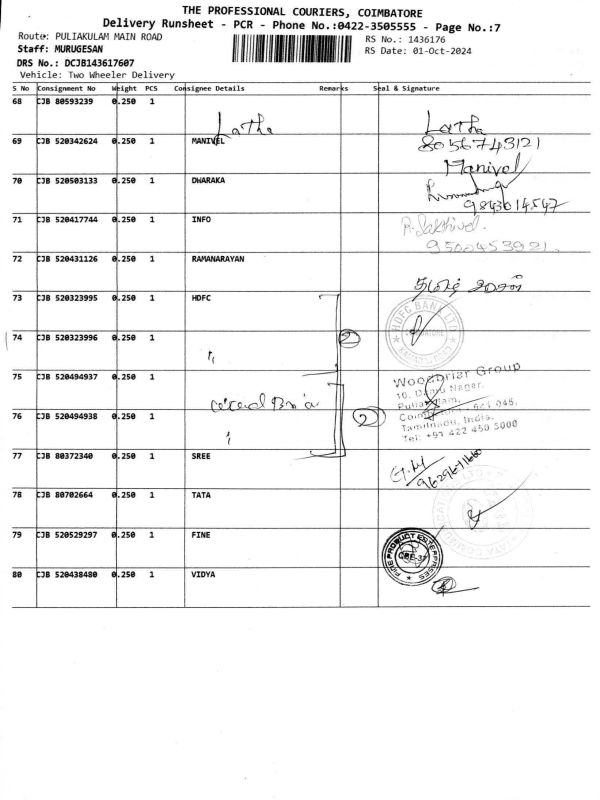 THE PROFESSIONAL COURIERS, COIMBATORE
Delivery Runsheet - PCR - Phone No.:0422-3505555 - Page No.:7
Route: PULIAKULAM MAIN ROAD
RS No.: 1436176
Staff: MURUGESAN
RS Date: 01-Oct-2024
DRS No.: DCJB143617607
Vehicle: Two Wheeler Delivery
S No Consignment No Weight PCS Consignee Details Remarks Seal & Signature
68 CJB 80593239 0.250 1 Latha Latha
8056743121
69 CJB 520342624 0.250 1 MANIVEL Manivel
70 CJB 520503133 0.250 1 DHARAKA
9843014547
71 CJB 520417744 0.250 1 INFO R. Sakthivel.
9500453921.
72 CJB 520431126 0.250 1 RAMANARAYAN
73 CJB 520323995 0.250 1 HDFC HDFC BANK LTD
74 CJB 520323996 0.250 1 2
75 CJB 520494937 0.250 1 Woodbriar Group
76 CJB 520494938 0.250 1 2
Tamilnadu, India.
Tel: +91 422 450 5000
77 CJB 80372340 0.250 1 SREE
78 CJB 80702664 0.250 1 TATA
79 CJB 520529297 0.250 1 FINE
80 CJB 520438480 0.250 1 VIDYA